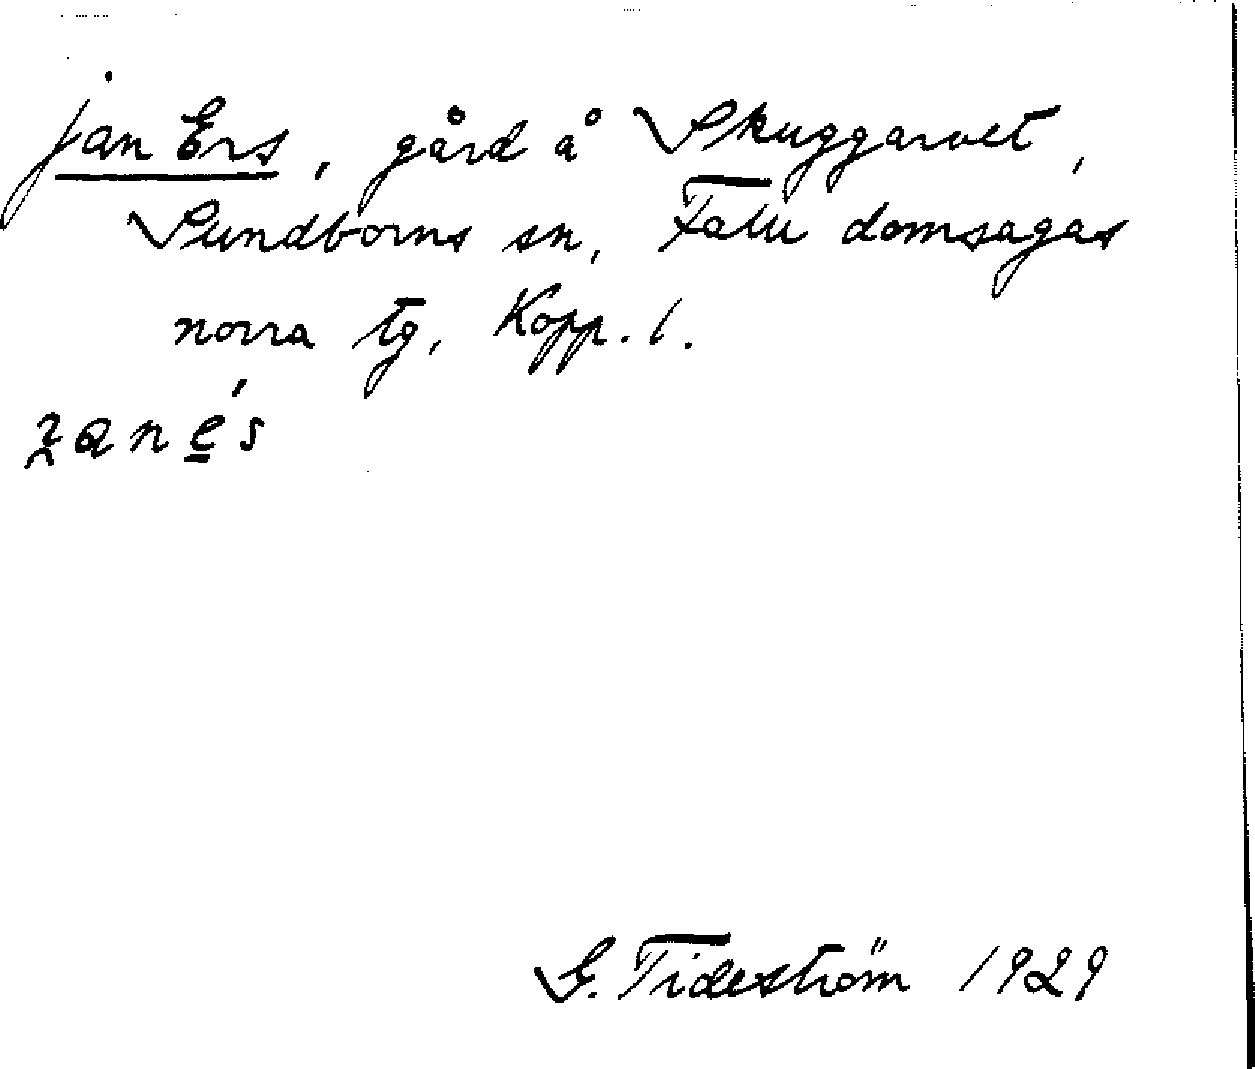 jan Ers, gård å Skuggarvet,
Sundborns sn, Falu domsagas
norra tg, Kopp. l.
G. Tideström 1929